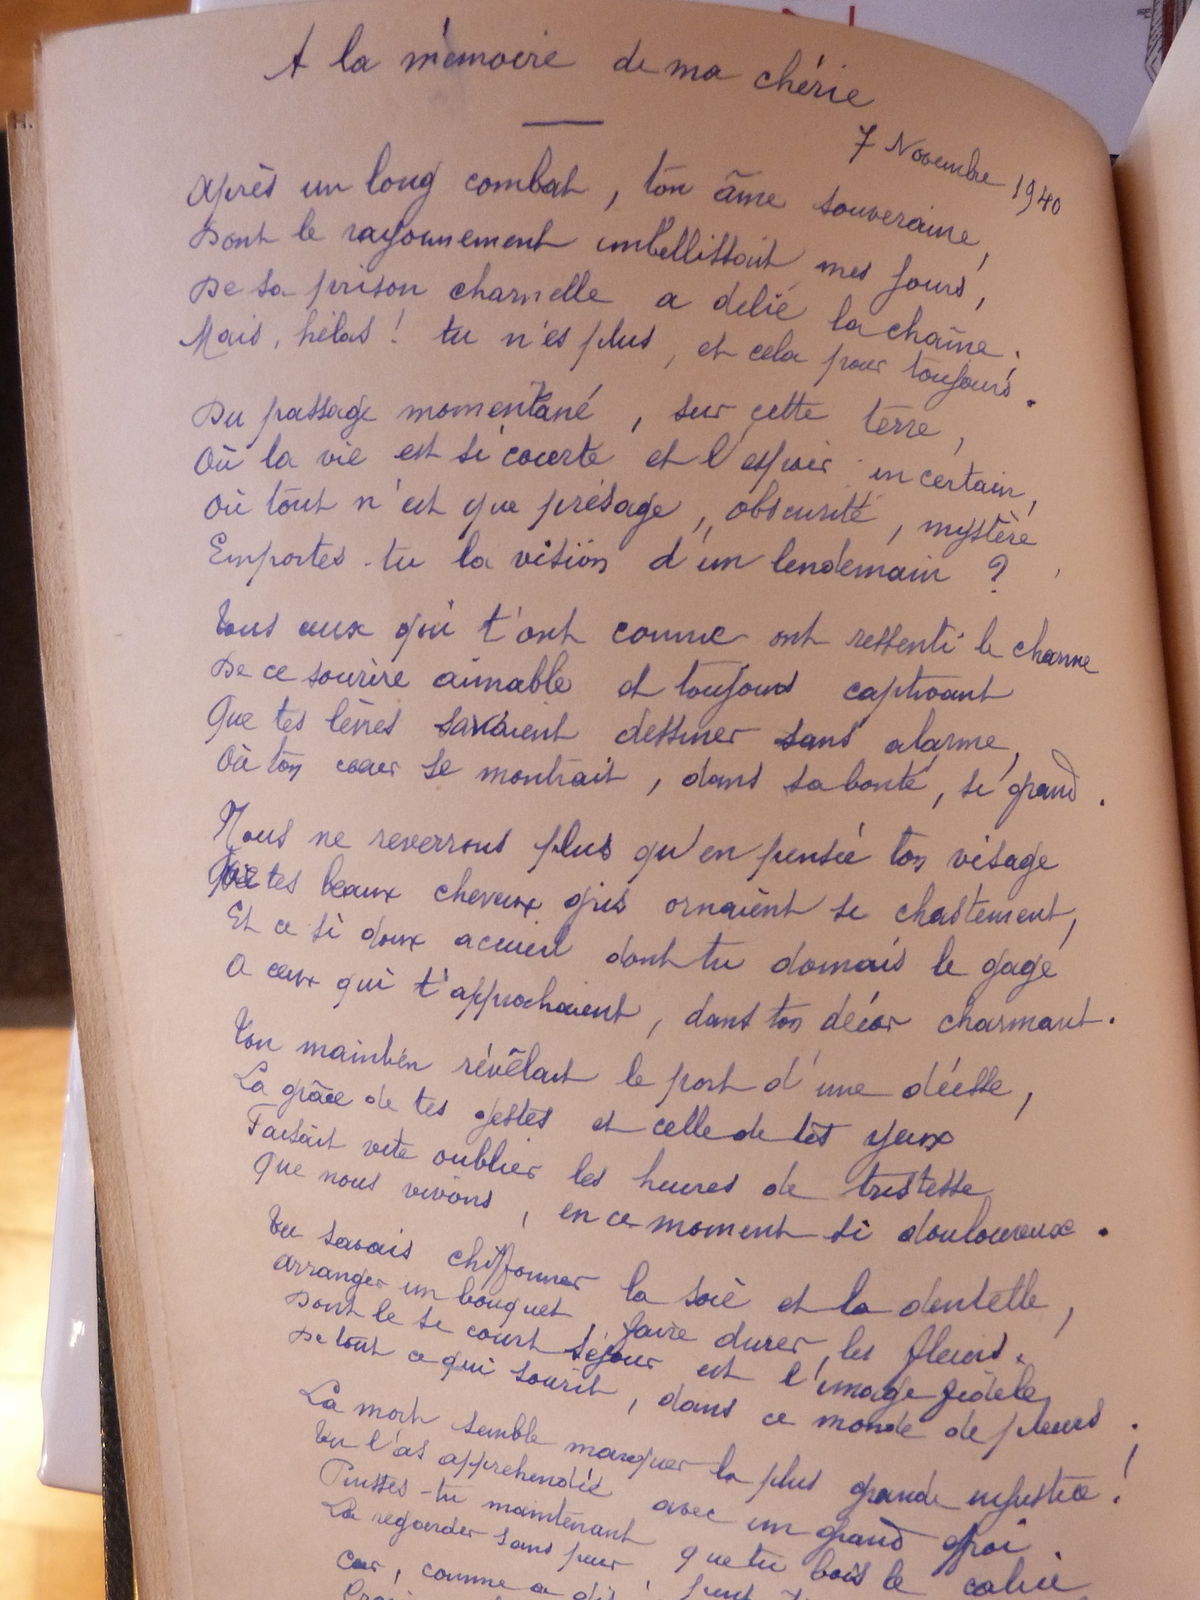 A la mémoire de ma chérie
7 Novembre 1940
Après un long combat, ton âme souveraine,
Dont le rayonnement embellissait mes jours,
De sa prison charnelle a delié la chaîne.
Mais, hélas ! tu n'es plus, et cela pour toujours.
Du passage momentané, sur cette terre,
Où la vie est si courte et l'espoir incertain,
Où tout n'est que présage, obscurité, mystère,
Emportes-tu la vision d'un lendemain ?
Tous ceux qui t'ont connue ont ressenti le charme
De ce sourire aimable et toujours captivant
Que tes lèvres savaient dessiner sans alarme,
Où ton cœur se montrait, dans sa bonté, si grand.
Nous ne reverrons plus qu'en pensée ton visage
Que tes beaux cheveux gris ornaient si chastement,
Et ce si doux accueil dont tu donnais le gage
A ceux qui t'approchaient, dans ton décor charmant.
Ton maintien révélait le port d'une déesse,
La grâce de tes gestes et celle de tes yeux
Faisait vite oublier les heures de tristesse
Que nous vivons, en ce moment si douloureux.
Tu savais chiffonner la soie et la dentelle,
Arranger un bouquet, faire durer les fleurs,
Dont le si court séjour est l'image fidèle
De tout ce qui sourit, dans ce monde de pleurs.
La mort semble marquer la plus grande injustice !
Tu l'as appréhendée avec un grand effroi.
Puisses-tu maintenant que tu bois le calice
La regarder sans peur
Car, comme a dit